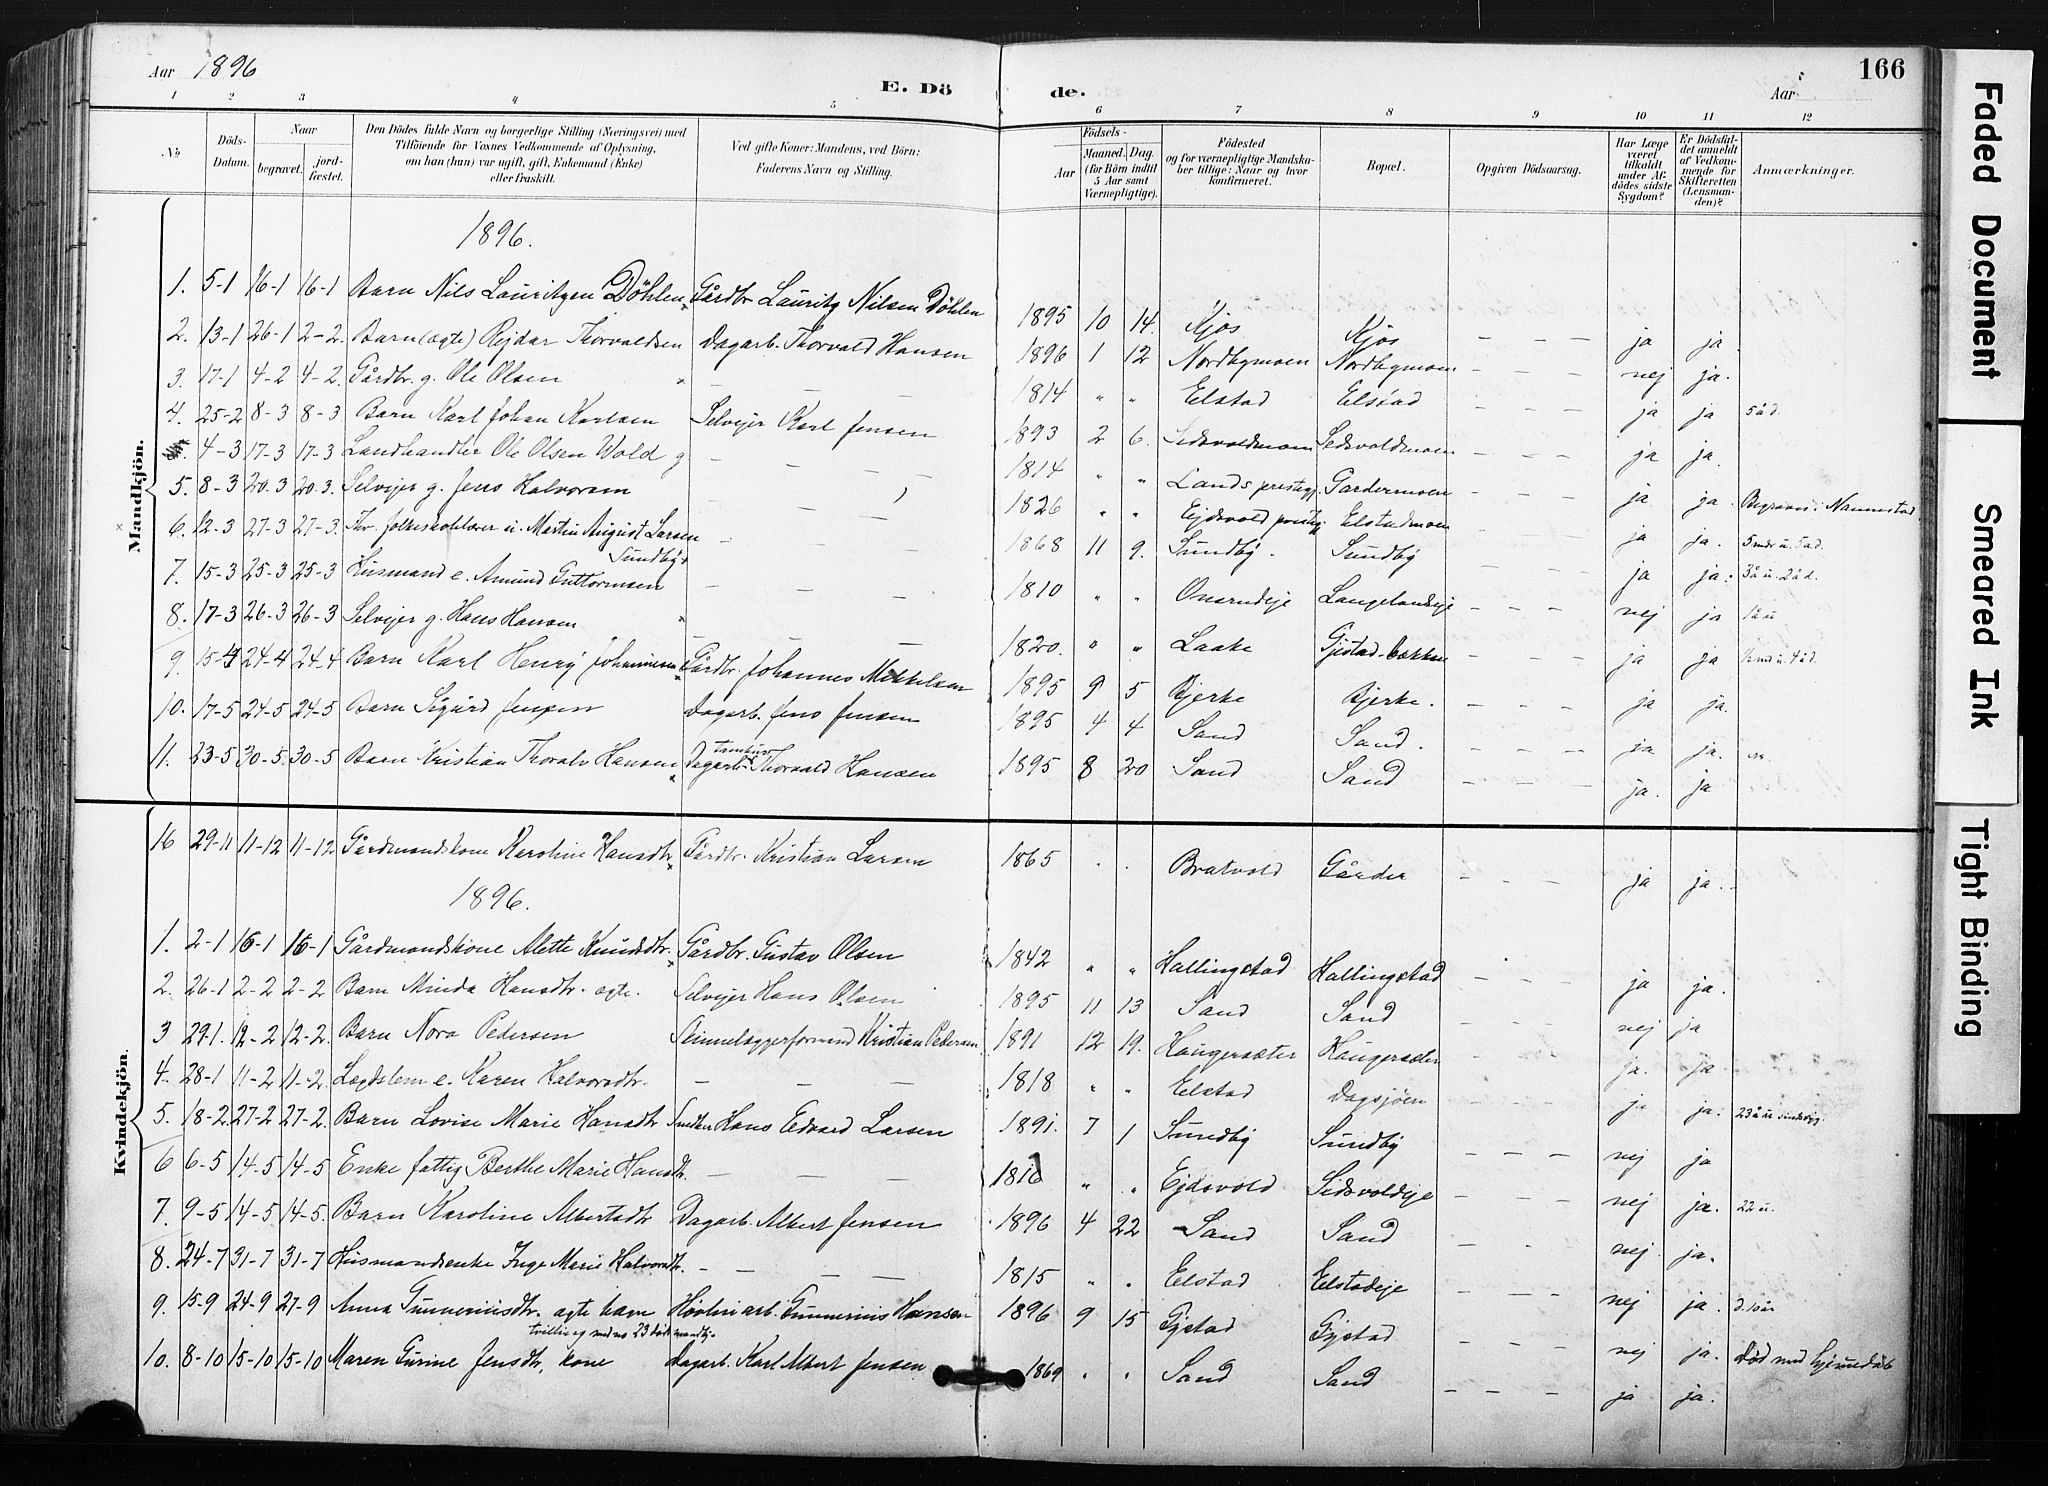 Aar 1896
E. Döde.
Aar
166
1 2 3 4 5 6 7 8 9 10 11 12
No
Döds-Datum.
Naar
begravet.
jordfæstet.
Den Dödes fulde Navn og borgerlige Stilling (Næringsvei) med
Tilföiende for Voxnes Vedkommende af Oplysning,
om han (hun) var ugift, gift, Enkemand (Enke)
eller fraskilt.
Ved gifte Koner: Mandens, ved Börn:
Faderens Navn og Stilling.
Födsels-
Aar
Maaned. Dag.
(for Börn indtil
5 Aar samt
Værnepligtige).
Födested
og for værnepligtige Mandskaber tillige: Naar og hvor
konfirmeret.
Bopæl.
Opgiven Dödsaarsag.
Har Læge
været
tilkaldt
under Afdödes sidste
Sygdom?
Er Dödsfaldet anmeldt
af Vedkommende for
Skifteretten
(Lensmanden)?
Anmærkninger.
Mandkjön.
1896.
1. 5-1 16-1 16-1 Barn Nils Lauritzen Döhlen Gårdbr. Lauritz Nilsen Döhlen 1895 10 14. Kjos Kjos – – – ja ja.
2. 13-1 26-1 2-2. Barn (ægte) Rejdar Thorvaldsen Dagarb. Thorvald Hansen 1896 1 12 Nordbymoen Nordbymoen – – – nej ja.
3. 17-1 4-2 4-2. Gårdbr. g. Ole Olsen – – 1814 " " Elstad Elstad – – – ja ja 5 å d.
4. 25-2 8-3 8-3 Barn Karl Johan Karlsen Selvejer Karl Jensen 1893 2 6. Sidsvoldmoen Sidsvoldmoen – – – ja ja.
4-3 17-3 17-3 Landhandler Ole Olsen Wold g – – – 1814 " " Lands prestegj. Gardermoen – – – ja ja. Begraves i Nannestad.
5. 8-3 20.3 20.3. Selvejer g. Jens Halvorsen – 1826 " " Ejdsvold prestegj. Elstadmoen – – – ja ja. 5 mdr u. 5 a d.
6. 12-3 27-3 27-3. Fhv. folkeskolelærer u. Martin August Larsen Sundby – – – 1868 11 9. Sundby. Sundby – – – ja ja. 3 å u. 2 å d.
7. 15-3 25-3 25-3 Husmand e. Amund Guttormsen – – – 1810 " " Onsrudeje Langelandseje – – – nej ja 1 å u
8. 17-3 26-3 26-3 Selvejer g. Hans Hansen – – 1820. " " Laake Gjestad-bakken – – – ja ja ½ md u. 4 å d.
9. 15-4 24-4 24-4 Barn Karl Henry Johannesen Gårdbr. Johannes Mikkelsen 1895 9 5 Bjerke Bjerke. – – – ja ja.
10. 17-5 24-5 24-5 Barn Sigurd Jensen Dagarb. Jens Jensen 1895 4 4 Sand Sand. – – – ja ja.
11. 23-5 30-5. 30-5 Barn Kristian Thoralv Hansen Dagarb. Thorvald Hansen 1895 8 20 Sand Sand – – – ja. ja
Kvindekjön.
16 29-11 11-12 11-12. Gårdmandskone Karoline Hansdtr. Gårdbr. Kristian Larsen 1865 . . Bratvold Gårder – – – ja ja.
1896.
1. 2-1 16-1 16-1 Gårdmandskone Alette Knudsdtr. Gårdbr. Gustav Olsen 1842 " " Hallingstad Hallingstad – – ja ja.
2. 26-1 2-2 2-2 Barn Minda Hansdtr. ægte. Selvejer Hans Olsen 1895 11 13 Sand Sand – – – nej ja
3 29-1. 12-2 12-2. Barn Nora Pedersen Skinnelæggerformand Kristian Pedersen 1891 12 19. Haugersæter Haugersæter – – – ja. ja
4. 28-1 11-2 11-2. Lægdslem e. Karen Halvorsdtr. – – – 1818 " " Elstad Dagsjöen – – – ja ja. 23 å u
5. 18-2 27-2 27-2. Barn Lovise Marie Hansdtr Snedker Hans Edvard Larsen 1891. 7 1 Sundby Sundby – – – nej ja
6 6-5 14-5 14-5 Enke fattig Berthe Marie Hansdtr. – – – 1816 " " Ejdsvold Sidsvoldeje – – – nej ja. 22 u.
7. 9-5 14-5. 14-5. Barn Karoline Albertsdtr Dagarb. Albert Jensen 1896 4 22 Sand Sand – – nej. ja.
8. 24-7 31-7 31-7 Husmandsenke Inge Marie Halvorsdtr. – – – – 1815 " " Elstad Elstadeje – – – nej ja. d. 10 år
9. 15-9 24-9 27-9 Anna Gunneriusdtr. ægte barn tvilling med no 23 Høvleriarb. Gunnerius Hansen 1896 9 15 Gjstad Gjstad – – – nej ja.
10. 8-10 15-10 15-10 Maren Gurine Jensdtr, kone Dagarb. Karl Albert Jensen. 1869 . . Sand Sand – – – ja ja. Död
Faded Document
Smeared Ink
Tight Binding